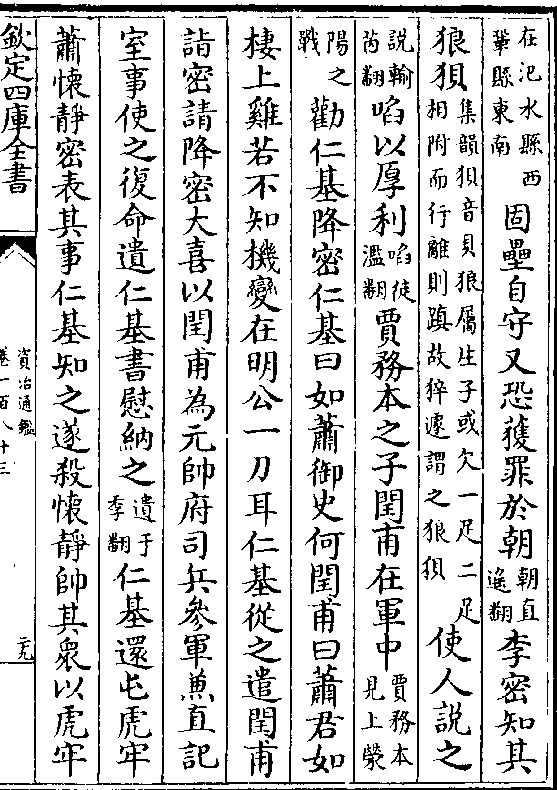 在汜水縣西鞏縣東南固壘自守又恐獲罪於朝朝直遙翻李密知其
狼狽集韻狽音貝狼屬生子或欠一足二足相附而行離則蹎故猝遽謂之狼狽使人說之
說輸芮翻啗以厚利啗徒濫翻賈務本之子閏甫在軍中賈務本見上滎
陽之戰勸仁基降密仁基曰如蕭御史何閏甫曰蕭君如
棲上雞若不知機變在明公一刀耳仁基從之遣閏甫
詣密請降密大喜以閏甫為元帥府司兵參軍兼直記
室事使之復命遺仁基書慰納之遺于季翻仁基還屯虎牢
蕭懷靜密表其事仁基知之遂殺懷靜帥其衆以虎牢
欽定四庫全書
資治通鑑
卷一百八十三